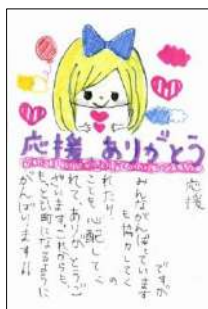 応援 ありがとう
応援
ですが
みんながんばっています
も協力してく
れたり
の
ことも心配してく
れて、ありがとうご
ざいます。これからも、
もっといい町になるように
がんばります!!